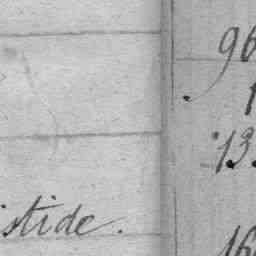 96
1
13
istide.
16